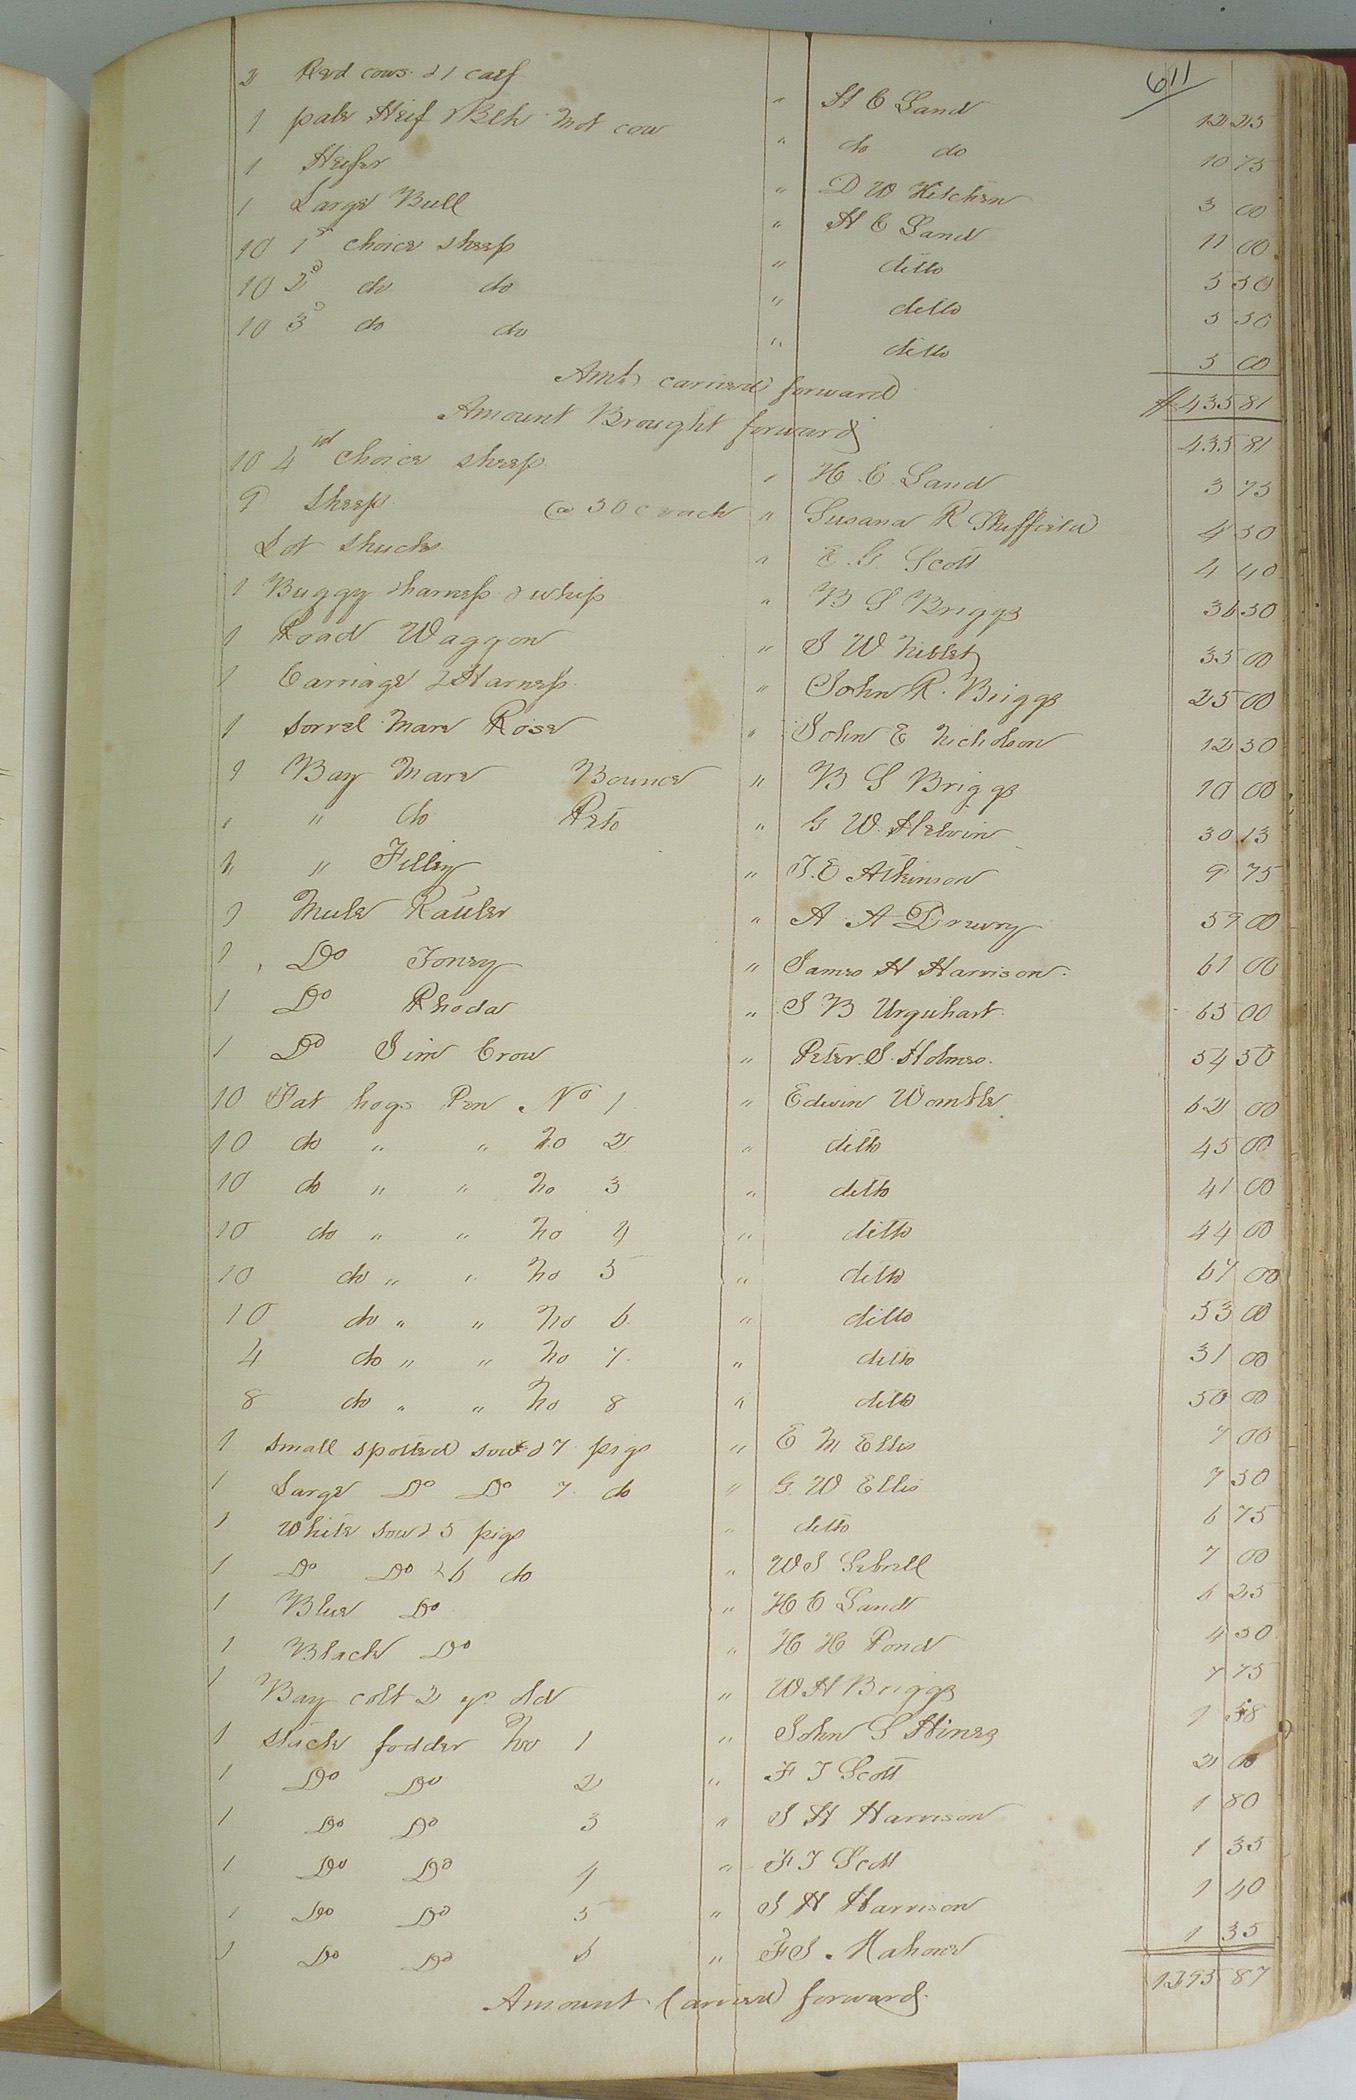 611
2 Red cows & 1 calf " H E Land 12 25
1 pale Heif & Blk Mot cow " do do 10 75
1 Heifer " D W Kitchen 3 00
1 Large Bull " H E Land 11 00
10 1st choice sheep " ditto 5 50
10 2d do do " ditto 5 50
10 3d do do " ditto 5 00
Amt carried forward $435 81
Amount Brought forward 435 81
10 4 choice sheep " H. E. Land 3 75
9 sheep @ 50c each " Susana R Sheffield 4 50
Lot shucks " E. G. Scott 4 40
1 Buggy & harness & whip " B S Briggs 36 50
1 Road Waggon " S W Niblet 35 00
1 Carriage & Harness " John R. Briggs 25 00
1 Sorrel Mare Rose " John E Nicholson 12 50
1 Bay Mare Bounce " B S Briggs 10 00
" " do Peto " G W Helvin 30 13
1 " Filley " T. E Atkinson 9 75
1 Mule " A A Drewry 59 00
1 Do Toney " James H Harrison 61 00
1 Do Rhoda " S B Urquhart 65 00
1 Do Jim Crow " Peter S. Holmes 54 50
10 Fat hogs Pen No 1 " Edwin Womble 62 00
10 do " " No 2 " ditto 45 00
10 do " " No 3 " ditto 41 00
10 do " " No 4 " ditto 44 00
10 do " " No 5 " ditto 67 00
10 do " " No 6 " ditto 53 00
4 do " " No 7 " ditto 31 00
8 do " " No 8 " ditto 50 00
1 small spotted sow & 7 pigs " E M Ellis 7 00
1 Large Do Do 7 do " G. W Ellis 7 50
1 White sow & 5 pigs " ditto 6 75
1 Do Do & 6 do " W S Sebrell 7 00
1 Blue Do " H E Land 6 25
1 Black Do " H H Pond 4 50
1 Bay colt 2 yrs old " W H Briggs 7 75
1 Stack fodder No 1 " John S Hines 1 58
1 Do Do 2 " F T Scott 2 00
1 Do Do 3 " J H Harrison 1 80
1 Do Do 4 " F T Scott 1 35
1 Do Do 5 " J H Harrison 1 40
1 Do Do 6 " F S. Mahone 1 35
Amount Carried forward 1395 87